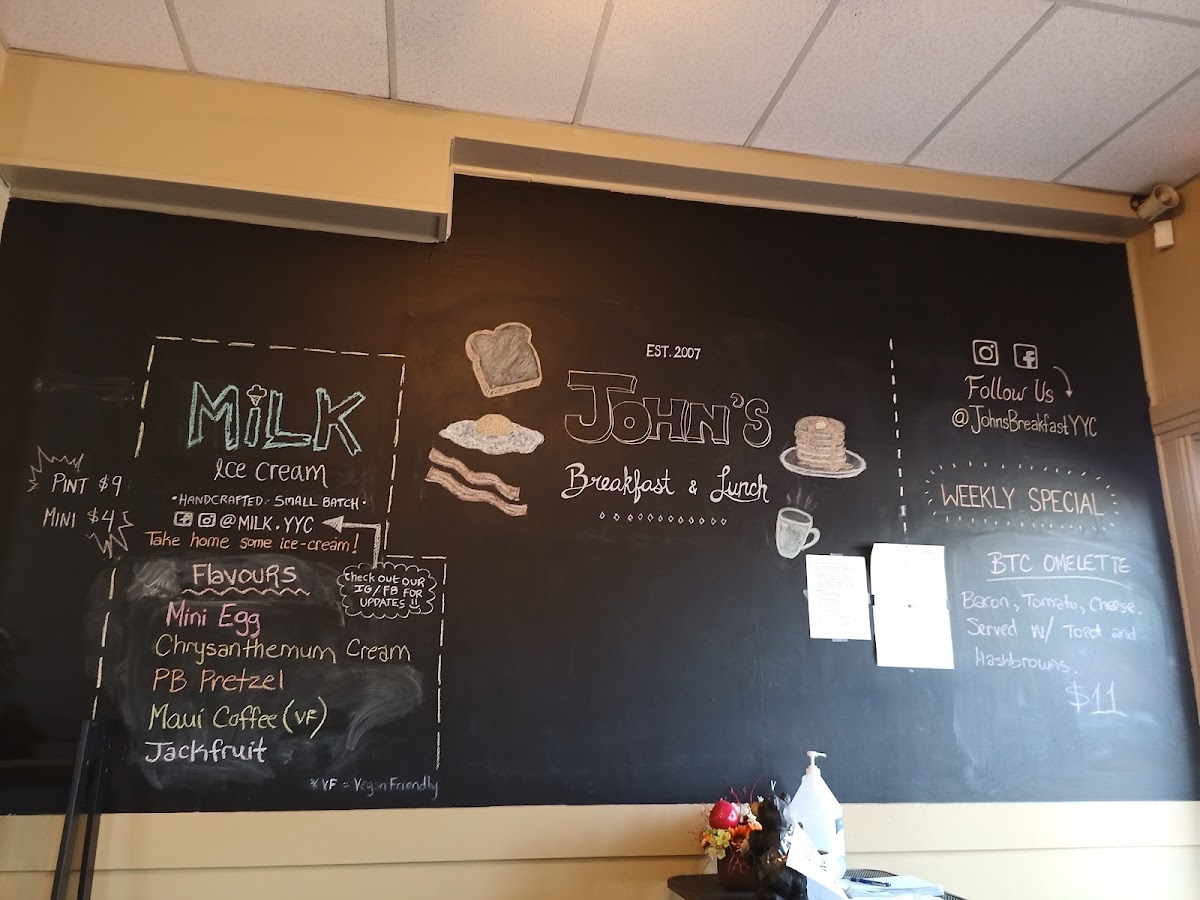 PINT $9
MINI $4
MiLK
Ice cream
• HANDCRAFTED • SMALL BATCH •
@MILK.YYC
Take home some ice-cream!
Flavours
check out OUR
IG/FB FOR
UPDATES!!
Mini Egg
Chrysanthemum Cream
PB Pretzel
Maui Coffee (VF)
Jackfruit
* VF = Vegan Friendly
EST. 2007
JOHN'S
Breakfast & Lunch
Follow Us
@JohnsBreakfastYYC
WEEKLY SPECIAL
BTC OMELETTE
Bacon, Tomato, Cheese.
Served W/ Toast and
Hashbrowns.
$11